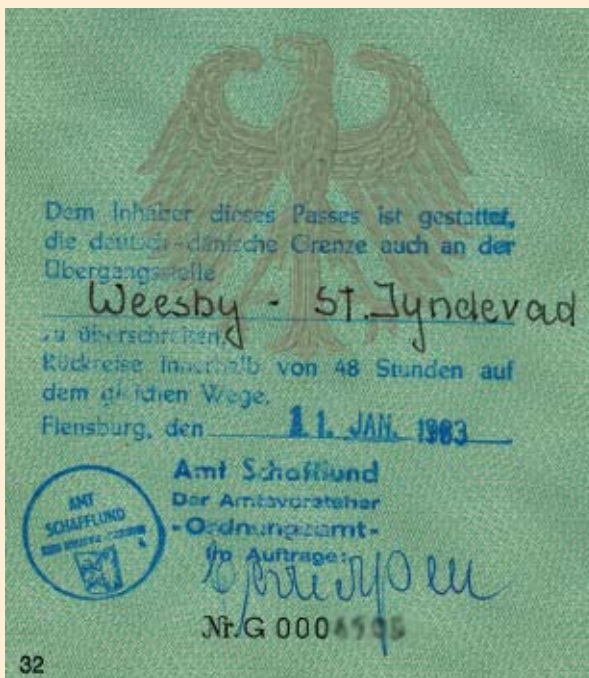 Dem Inhaber dieses Passes ist gestattet,
die deutsch-dänische Grenze auch an der
Übergangsstelle
Weesby - St. Jyndevad
zu überschreiten.
Rückreise innerhalb von 48 Stunden auf
dem gleichen Wege.
Flensburg, den 11. JAN. 1983
Amt Schafflund
Der Amtsvorsteher
-Ordnungsamt-
Im Auftrage:
AMT
SCHAFFLUND
Nr. G 000
32